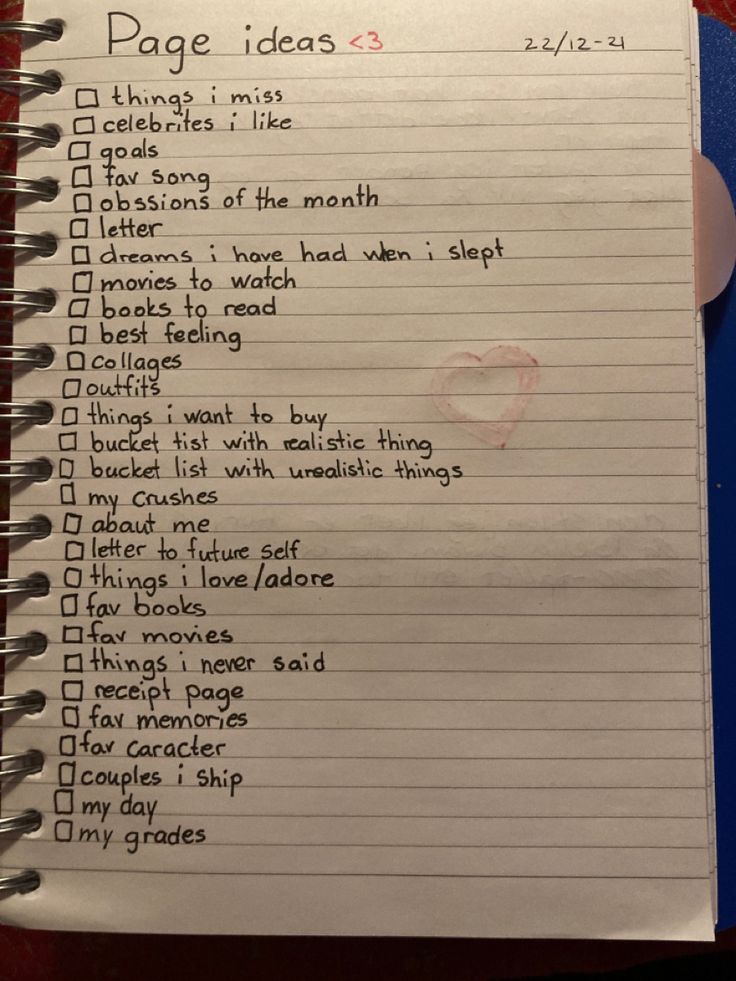 Page ideas <3 22/12-21
things i miss
celebrites i like
goals
fav song
obssions of the month
letter
dreams i have had when i slept
movies to watch
books to read
best feeling
collages
outfits
things i want to buy
bucket tist with realistic thing
bucket list with urealistic things
my crushes
abaut me
letter to future self
things i love/adore
fav books
fav movies
things i never said
receipt page
fav memories
fav caracter
couples i ship
my day
my grades